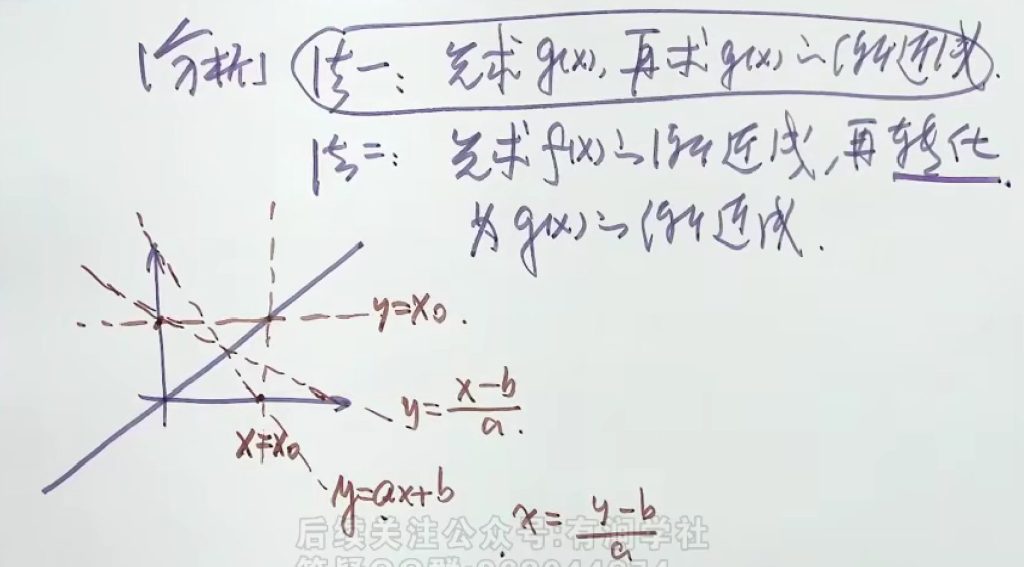 [分析] 法一: 先求g(x), 再求g(x)的渐近线.
法二: 先求f(x)的渐近线, 再转化
为g(x)的渐近线.
y=x₀.
y=\frac{x-b}{a}.
x=x₀
y=ax+b
x=\frac{y-b}{a}
后续关注公众号:有洞学社